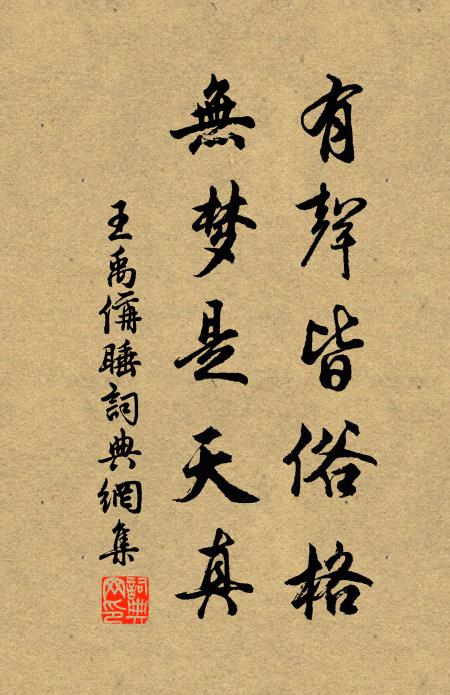 有聲皆俗格
無梦是天真
王禹偁睡詞典網集
詞典网印